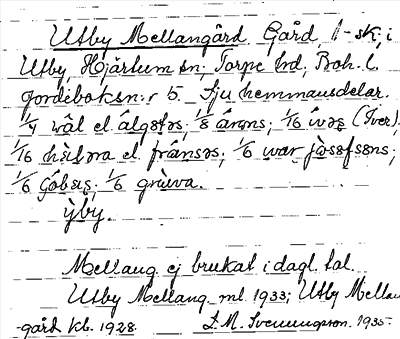 Utby Mellangård. Gård, 1-sk, i
Utby, Hjärtum sn; Torpe hd, Boh. l.
Jordeboksnr 5. Sju hemmansdelar.
1/4 wäl el. álgotəs, 1/8 árəns; 1/16 ívəs (Iver),
1/16 fránsəs; 1/6 war jòsəfsəns;
1/6 1/6 grùwa.
ỳby.
Mellang. ej brukat i dagl. tal.
Utby Mellang. ml. 1933; Utby Mellan-
gård kb. 1928. L. M. Svenungsson. 1935.